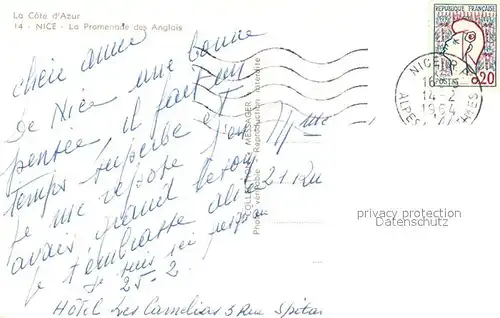 La Côte d'Azur
14 - NICE - La Promenade des Anglais
chère amie
de Nice une bonne
pensée, il fait un
temps superbe et
je me repose j'en
avais grand besoin
je t'embrasse
je suis ici jusqu'au
25-2.
HÔTEL Les Camélias 3 Rue Spitalieri
COLLECTION MESSAGER
Photo véritable - Reproduction interdite
Mme
21 Rue
REPUBLIQUE FRANÇAISE
POSTES
0,20
NICE
16
14-2
1964
ALPES MMES
privacy protection
Datenschutz